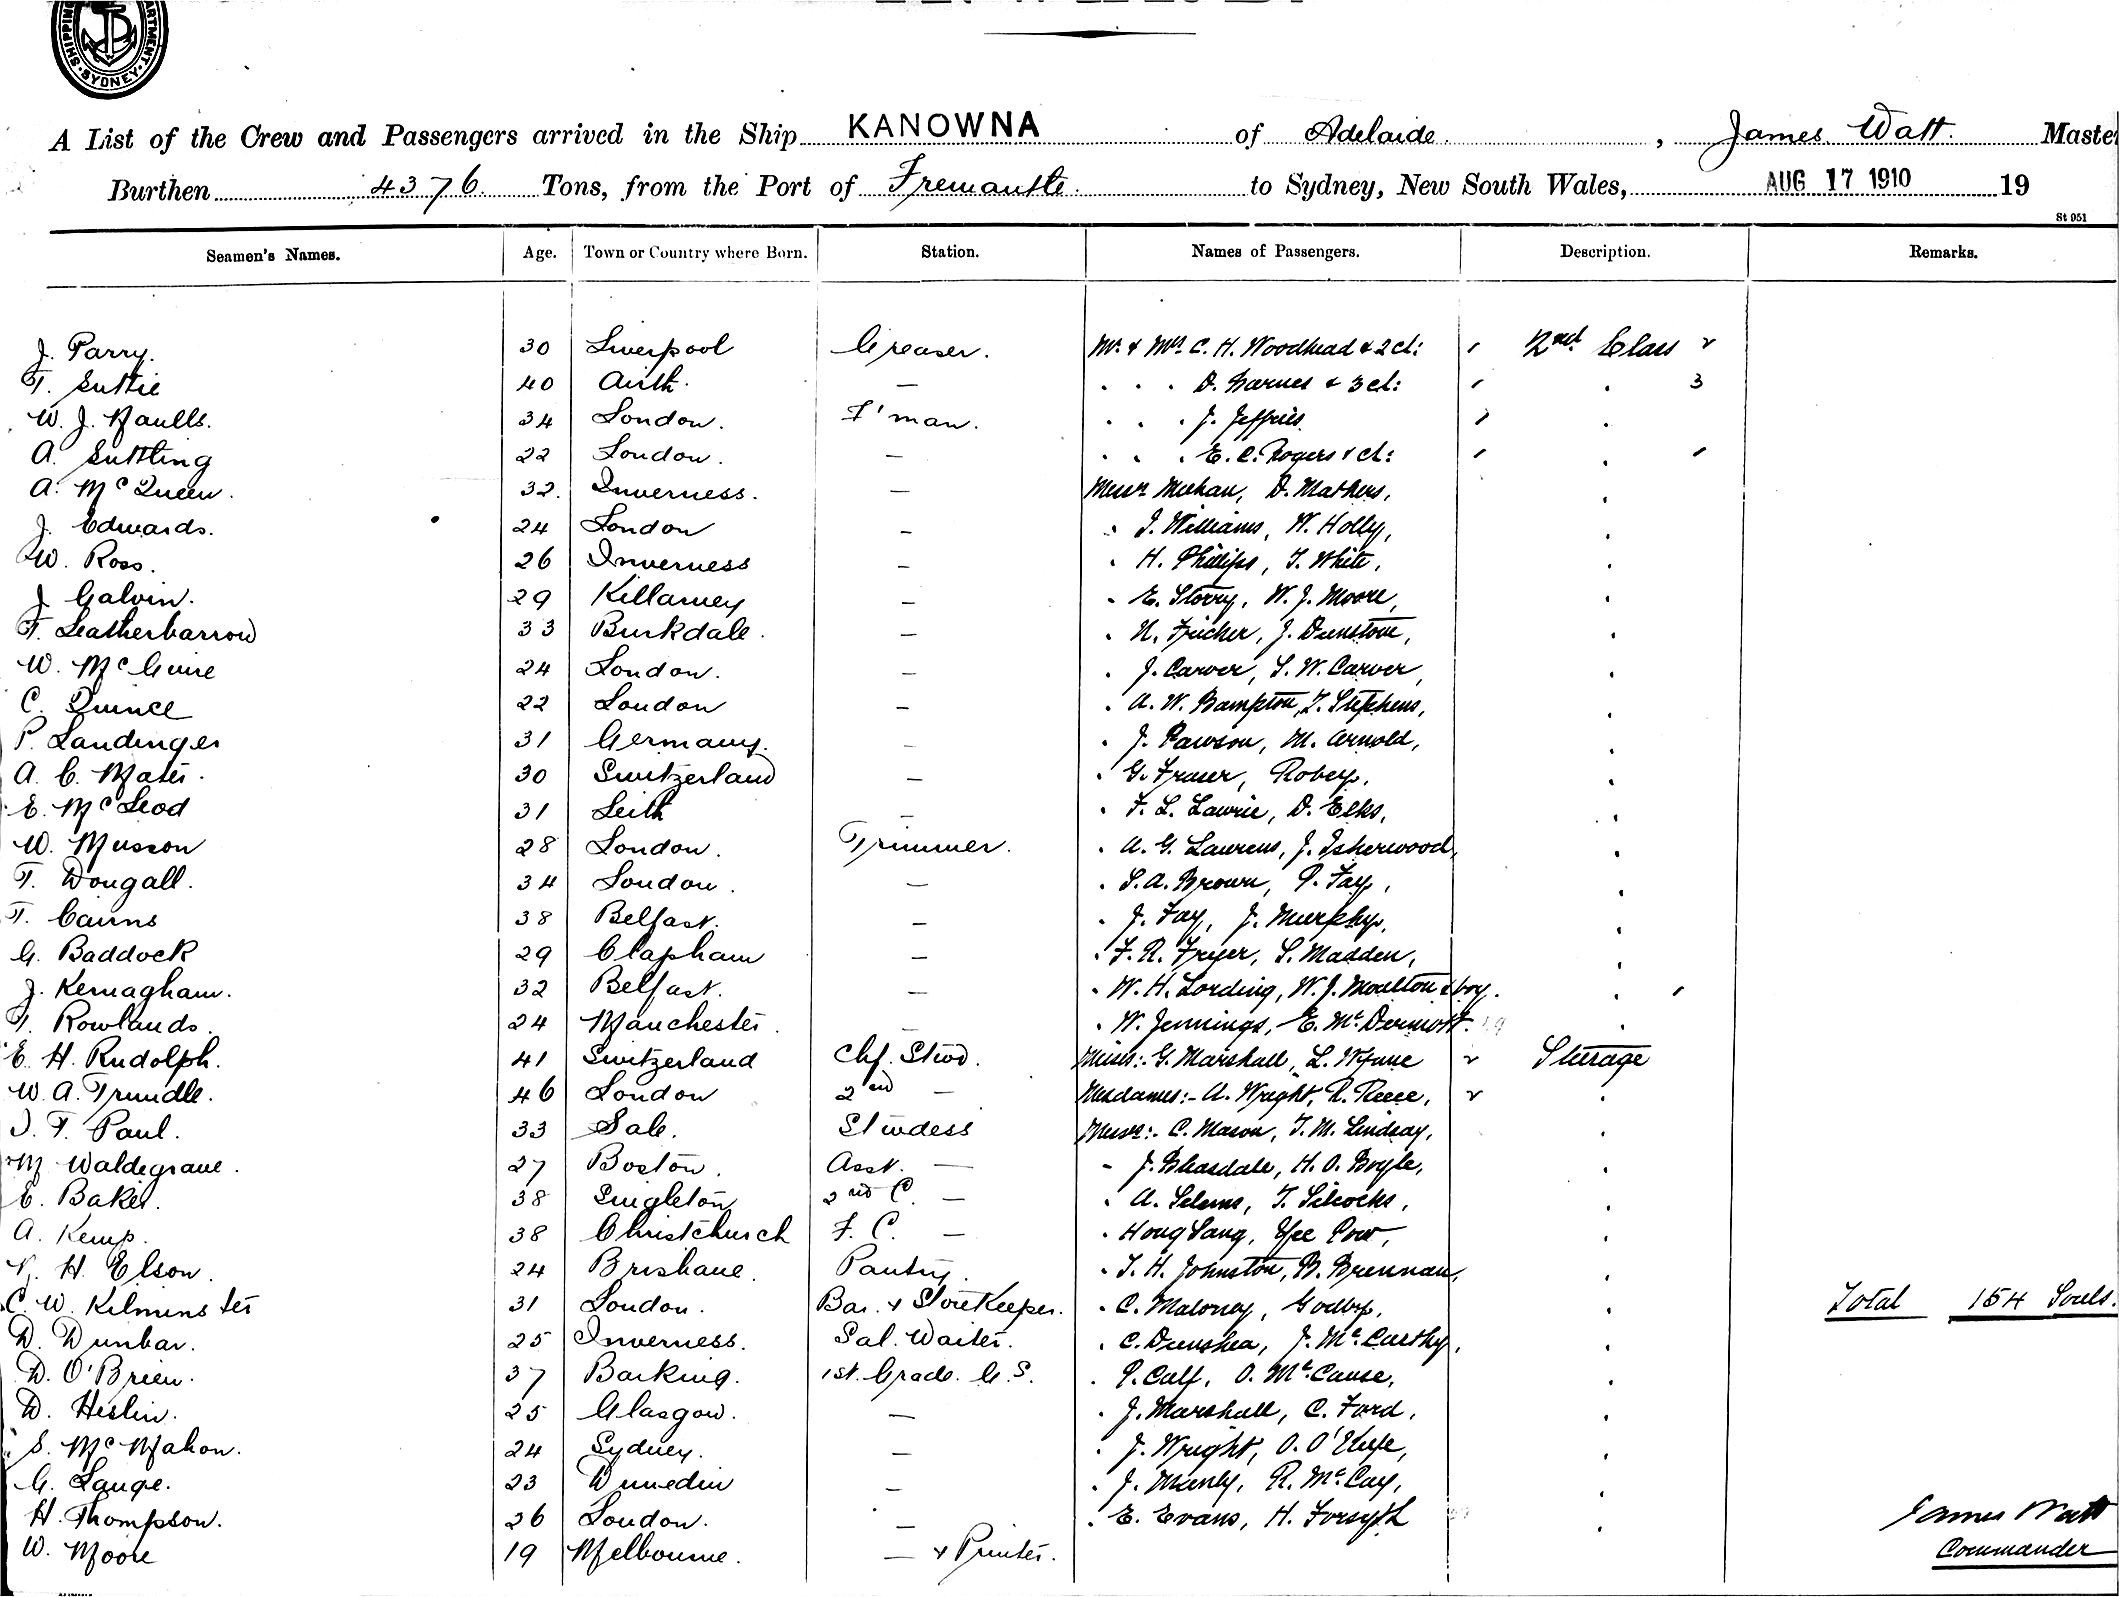 SHIPPING DEPARTMENT SYDNEY
A List of the Crew and Passengers arrived in the Ship KANOWNA of Adelaide, James Watt. Maste
Burthen 4376 Tons, from the Port of Fremantle to Sydney, New South Wales, AUG 17 1910 19
St 951
Seamen's Names. Age. Town or Country where Born. Station. Names of Passengers. Description. Remarks.
J. Parry. 30 Liverpool Greaser. Mr. & Mrs. C. H. Woodhead & 2 ch: 2nd Class
T. Suttie 40 Airth. — D. Barnes & 3 ch: 3
W. J. Maulls. 34 London. F'man. J. Jeffries.
A. Suttling 22 London. — E. C. Rogers & ch:
A. McQueen. 32. Inverness. — Messrs Meehan, D. Mathers,
J. Edwards. 24 London — J. Williams, W. Holly,
W. Ross. 26 Inverness — H. Phillips, T. White,
J. Galvin. 29 Killarney — E. Storry, W. J. Moore,
T. Leatherbarrow 33 Burkdale. — J. Dunstone,
W. McGuire 24 London. — J. Carver, S. W. Carver,
C. Quince 22 London — A. W. Bampton, T. Stephens,
P. Landinger 31 Germany. — J. Pawson, M. Arnold,
A. C. Mater. 30 Switzerland — G. Fraser, Robey,
E. McLeod 31 Leith — F. L. Lawrie, D. Elks,
W. Musson 28 London. Trimmer. A. G. Laurens, J. Isherwood,
T. Dougall. 34 London. — S. A. Brown, P. Fay,
T. Cairns 38 Belfast. — J. Fay, J. Murphy,
G. Baddock 29 Clapham — F. R. Fryer, S. Madden,
J. Kernagham. 32 Belfast. — W. H. Lording, W. J. Moulton & boy.
T. Rowlands. 24 Manchester. — W. Jennings, E. McDermott.
E. H. Rudolph. 41 Switzerland Chf. Stwd. Misses:- G. Marshall, L. Steerage
W. A. Trundle. 46 London 2nd — Mesdames:- A. Wright, R. Reece,
T. Paul. 33 Sale. Stwdess Messrs:- C. Mason, T. M. Lindsay,
M Waldegrave. 27 Boston. Asst. — J. Bleasdale, H. O. Boyle,
E. Baker. 38 Singleton 2nd C. — A. Selems, T. Silcocks,
A. Kemp. 38 Christchurch F. C. — Hong Sang, Yee Pow,
H. Elson. 24 Brisbane. Pantry. T. H. Johnston, B. Brennan,
C. W. Kilminster 31 London. Bar. & Storekeeper. C. Maloney, Godby, Total 154 Souls.
D. Dunbar. 25 Inverness. Sal. Waiter. C. Dunshea, J. McCarthy,
D. O'Brien. 37 Barking. 1st. Grade. G. S. P. Calf, O. McCause,
D. Heslin. 25 Glasgow. — J. Marshall, C. Ford,
S. McMahon. 24 Sydney. — J. Wright, O. O'Keefe,
G. Lange. 23 Dunedin — J. Manly, R. McCay,
H. Thompson. 26 London. — E. Evans, H. Forsyth James Watt
W. Moore 19 Melbourne. — & Printer. Commander